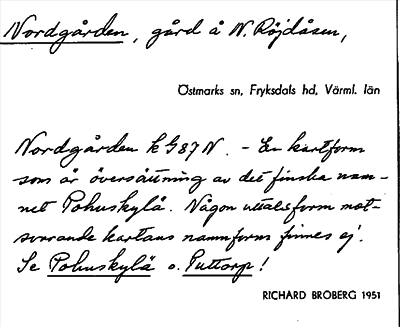 Nordgården, gård å N. Röjdåsen,
Östmarks sn, Fryksdals hd, Värml. län
Nordgården k G87 N. - En kartform
som är översättning av det finska nam-
net Pohuskylä. Någon uttalsform mot-
svarande kartans namnform finnes ej.
Se Pohuskylä o. Puttorp!
RICHARD BROBERG 1951